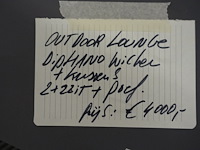 OUTDOOR LOUNGE
DIPHANO Wicker
+ kussens
2+2zit + poef.
Prijs: € 4000,-